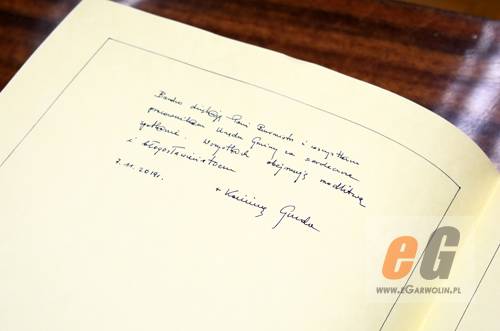 Bardzo dziękuję Pani Burmistrz i wszystkim
pracownikom Urzędu Gminy za serdeczne
spotkanie. Wszystkich obejmuję modlitwą
i błogosławieństwem
7.11.2014r.
+ Kazimierz Gurda
eG
www.eGarwolin.pl